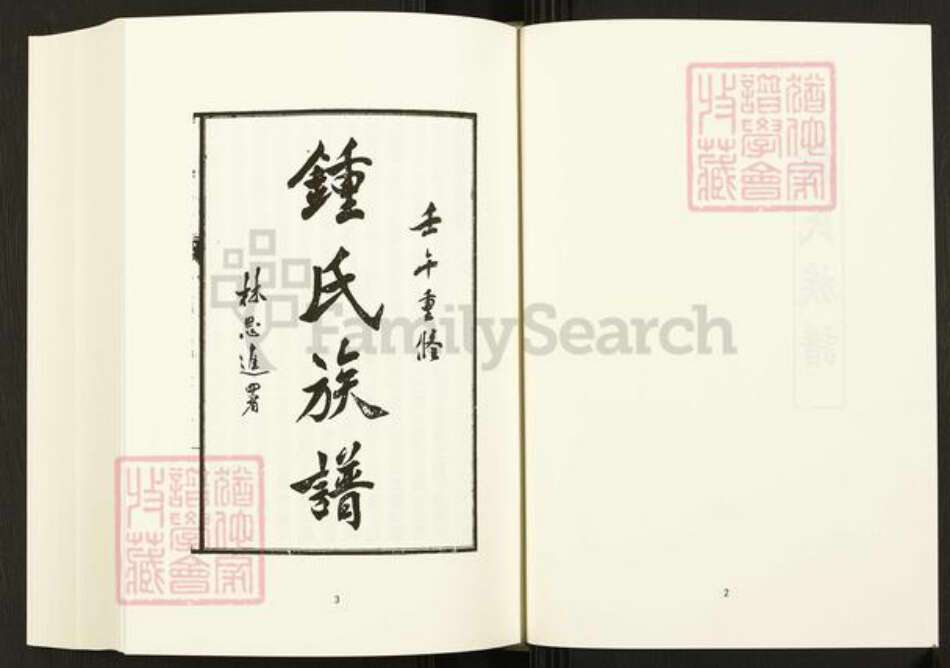 猶他家譜學會收藏
2
壬午重脩
鍾氏族譜
林思進署
猶他家譜學會收藏
3
FamilySearch